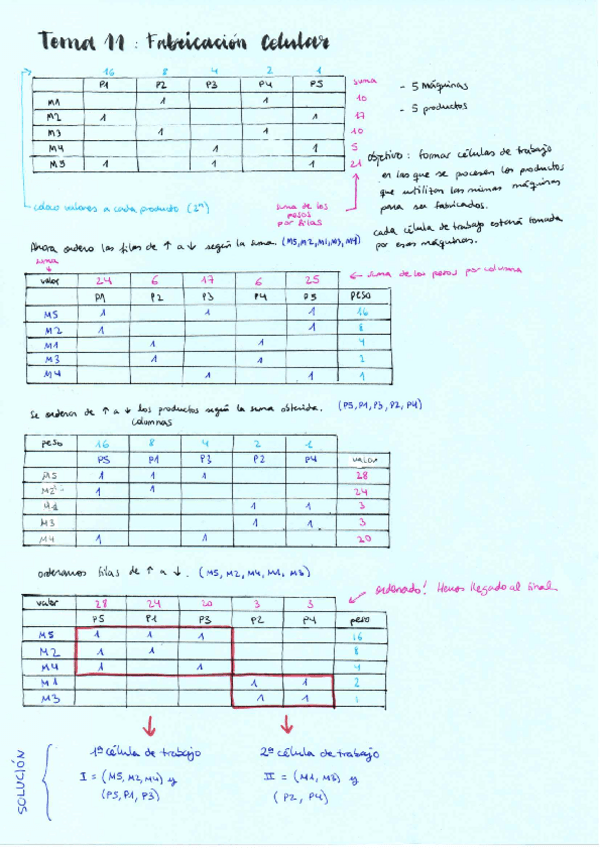 Tema 11: Fabricación Celular
16 8 4 2 1
P1 P2 P3 P4 P5 suma
M1 1 1 10
M2 1 1 17
M3 1 1 10
M4 1 1 5
M5 1 1 1 21
- 5 máquinas
- 5 productos
objetivo: formar células de trabajo
en las que se procesen los productos
que utilizan las mismas máquinas
para ser fabricados.
cada célula de trabajo estará formada
por esas máquinas.
coloco valores a cada producto (2ⁿ)
suma de los
pesos
por filas
Ahora ordeno las filas de ↑ a ↓ según la suma. (M5, M2, M1, M3, M4)
suma
valor 24 6 17 6 25 ← suma de los pesos por columna
P1 P2 P3 P4 P5 peso
M5 1 1 1 16
M2 1 1 8
M1 1 1 4
M3 1 1 2
M4 1 1 1
Se ordenan de ↑ a ↓ los productos según la suma obtenida. (P5, P1, P3, P2, P4)
columnas
peso 16 8 4 2 1
P5 P1 P3 P2 P4 valor
M5 1 1 1 28
M2 1 1 24
M1 1 1 3
M3 1 1 3
M4 1 1 20
ordenamos filas de ↑ a ↓. (M5, M2, M4, M1, M3)
ordenado! Hemos llegado al final.
valor 28 24 20 3 3
P5 P1 P3 P2 P4 peso
M5 1 1 1 16
M2 1 1 8
M4 1 1 4
M1 1 1 2
M3 1 1 1
SOLUCIÓN
1ª célula de trabajo
I = (M5, M2, M4) y
(P5, P1, P3)
2ª célula de trabajo
II = (M1, M3) y
(P2, P4)